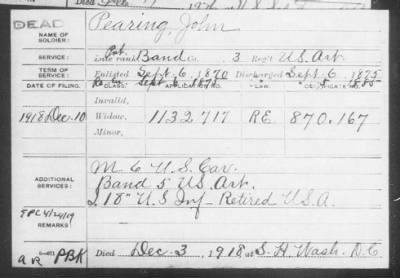 DEAD
NAME OF SOLDIER: Pearing, John
SERVICE: Late rank Pvt. Band Co. 3 Reg't U.S. Art.
TERM OF SERVICE: Enlisted Sept. 6, 1870 Discharged Sept. 6, 1875
DATE OF FILING. CLASS. APPLICATION NO. LAW. CERTIFICATE NO.
Invalid,
1918 Dec. 10 Widow, 1132,717 RE 870,167
Minor,
ADDITIONAL SERVICES: M 6 U.S. Cav.
Band 5" U.S. Art.
18" U.S. Inf - Retired U.S.A.
REMARKS:
PBK
Died Dec. 3, 1918, at S. H. Wash. D.C.